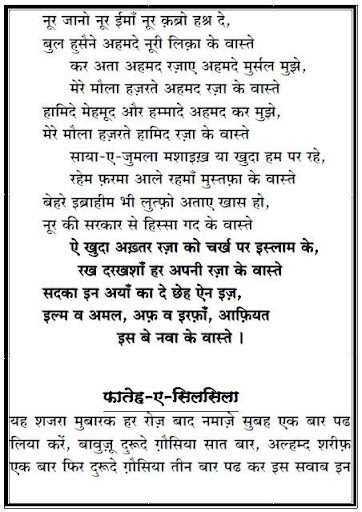 नूर जानो नूर ईमाँ नूर क़ब्रो हश्र दे,
बुल हुसैने अहमदे नूरी लिक़ा के वास्ते
कर अता अहमद रज़ाए अहमदे मुर्सल मुझे,
मेरे मौला हज़रते अहमद रज़ा के वास्ते
हामिदे मेहमूद और हम्मादे अहमद कर मुझे,
मेरे मौला हज़रते हामिद रज़ा के वास्ते
साया-ए-जुमला मशाइख़ या खुदा हम पर रहे,
रहेम फ़रमा आले रहमाँ मुस्तफ़ा के वास्ते
बेहरे इब्राहीम भी लुत्फ़ो अताए खास हो,
नूर की सरकार से हिस्सा गद के वास्ते
ऐ खुदा अख़्तर रज़ा को चर्ख पर इस्लाम के,
रख दरखशाँ हर अपनी रज़ा के वास्ते
सदका इन अयाँ का दे छेह ऐन इज़,
इल्म व अमल, अफ़ व इरफ़ाँ, आफ़ियत
इस बे नवा के वास्ते ।
फातेह-ए-सिलसिला
यह शजरा मुबारक हर रोज़ बाद नमाज़े सुबह एक बार पढ
लिया करें, बावुज़ू दुरूदे ग़ौसिया सात बार, अल्हम्द शरीफ़
एक बार फिर दुरूदे ग़ौसिया तीन बार पढ कर इस सवाब इन